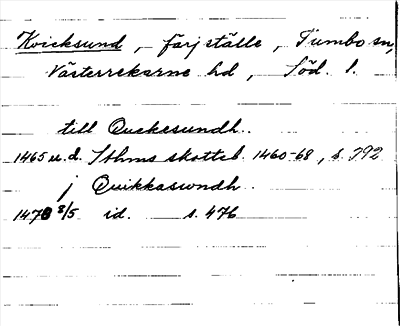 Kvicksund, färjställe, Tumbo sn,
Västerrekarne hd, Söd. l.
till Quekesundh.
1465 u.d. Sthms skotteb. 1460-68, s. 292
j Quikkaswndh.
1478 8/5 id. s. 476